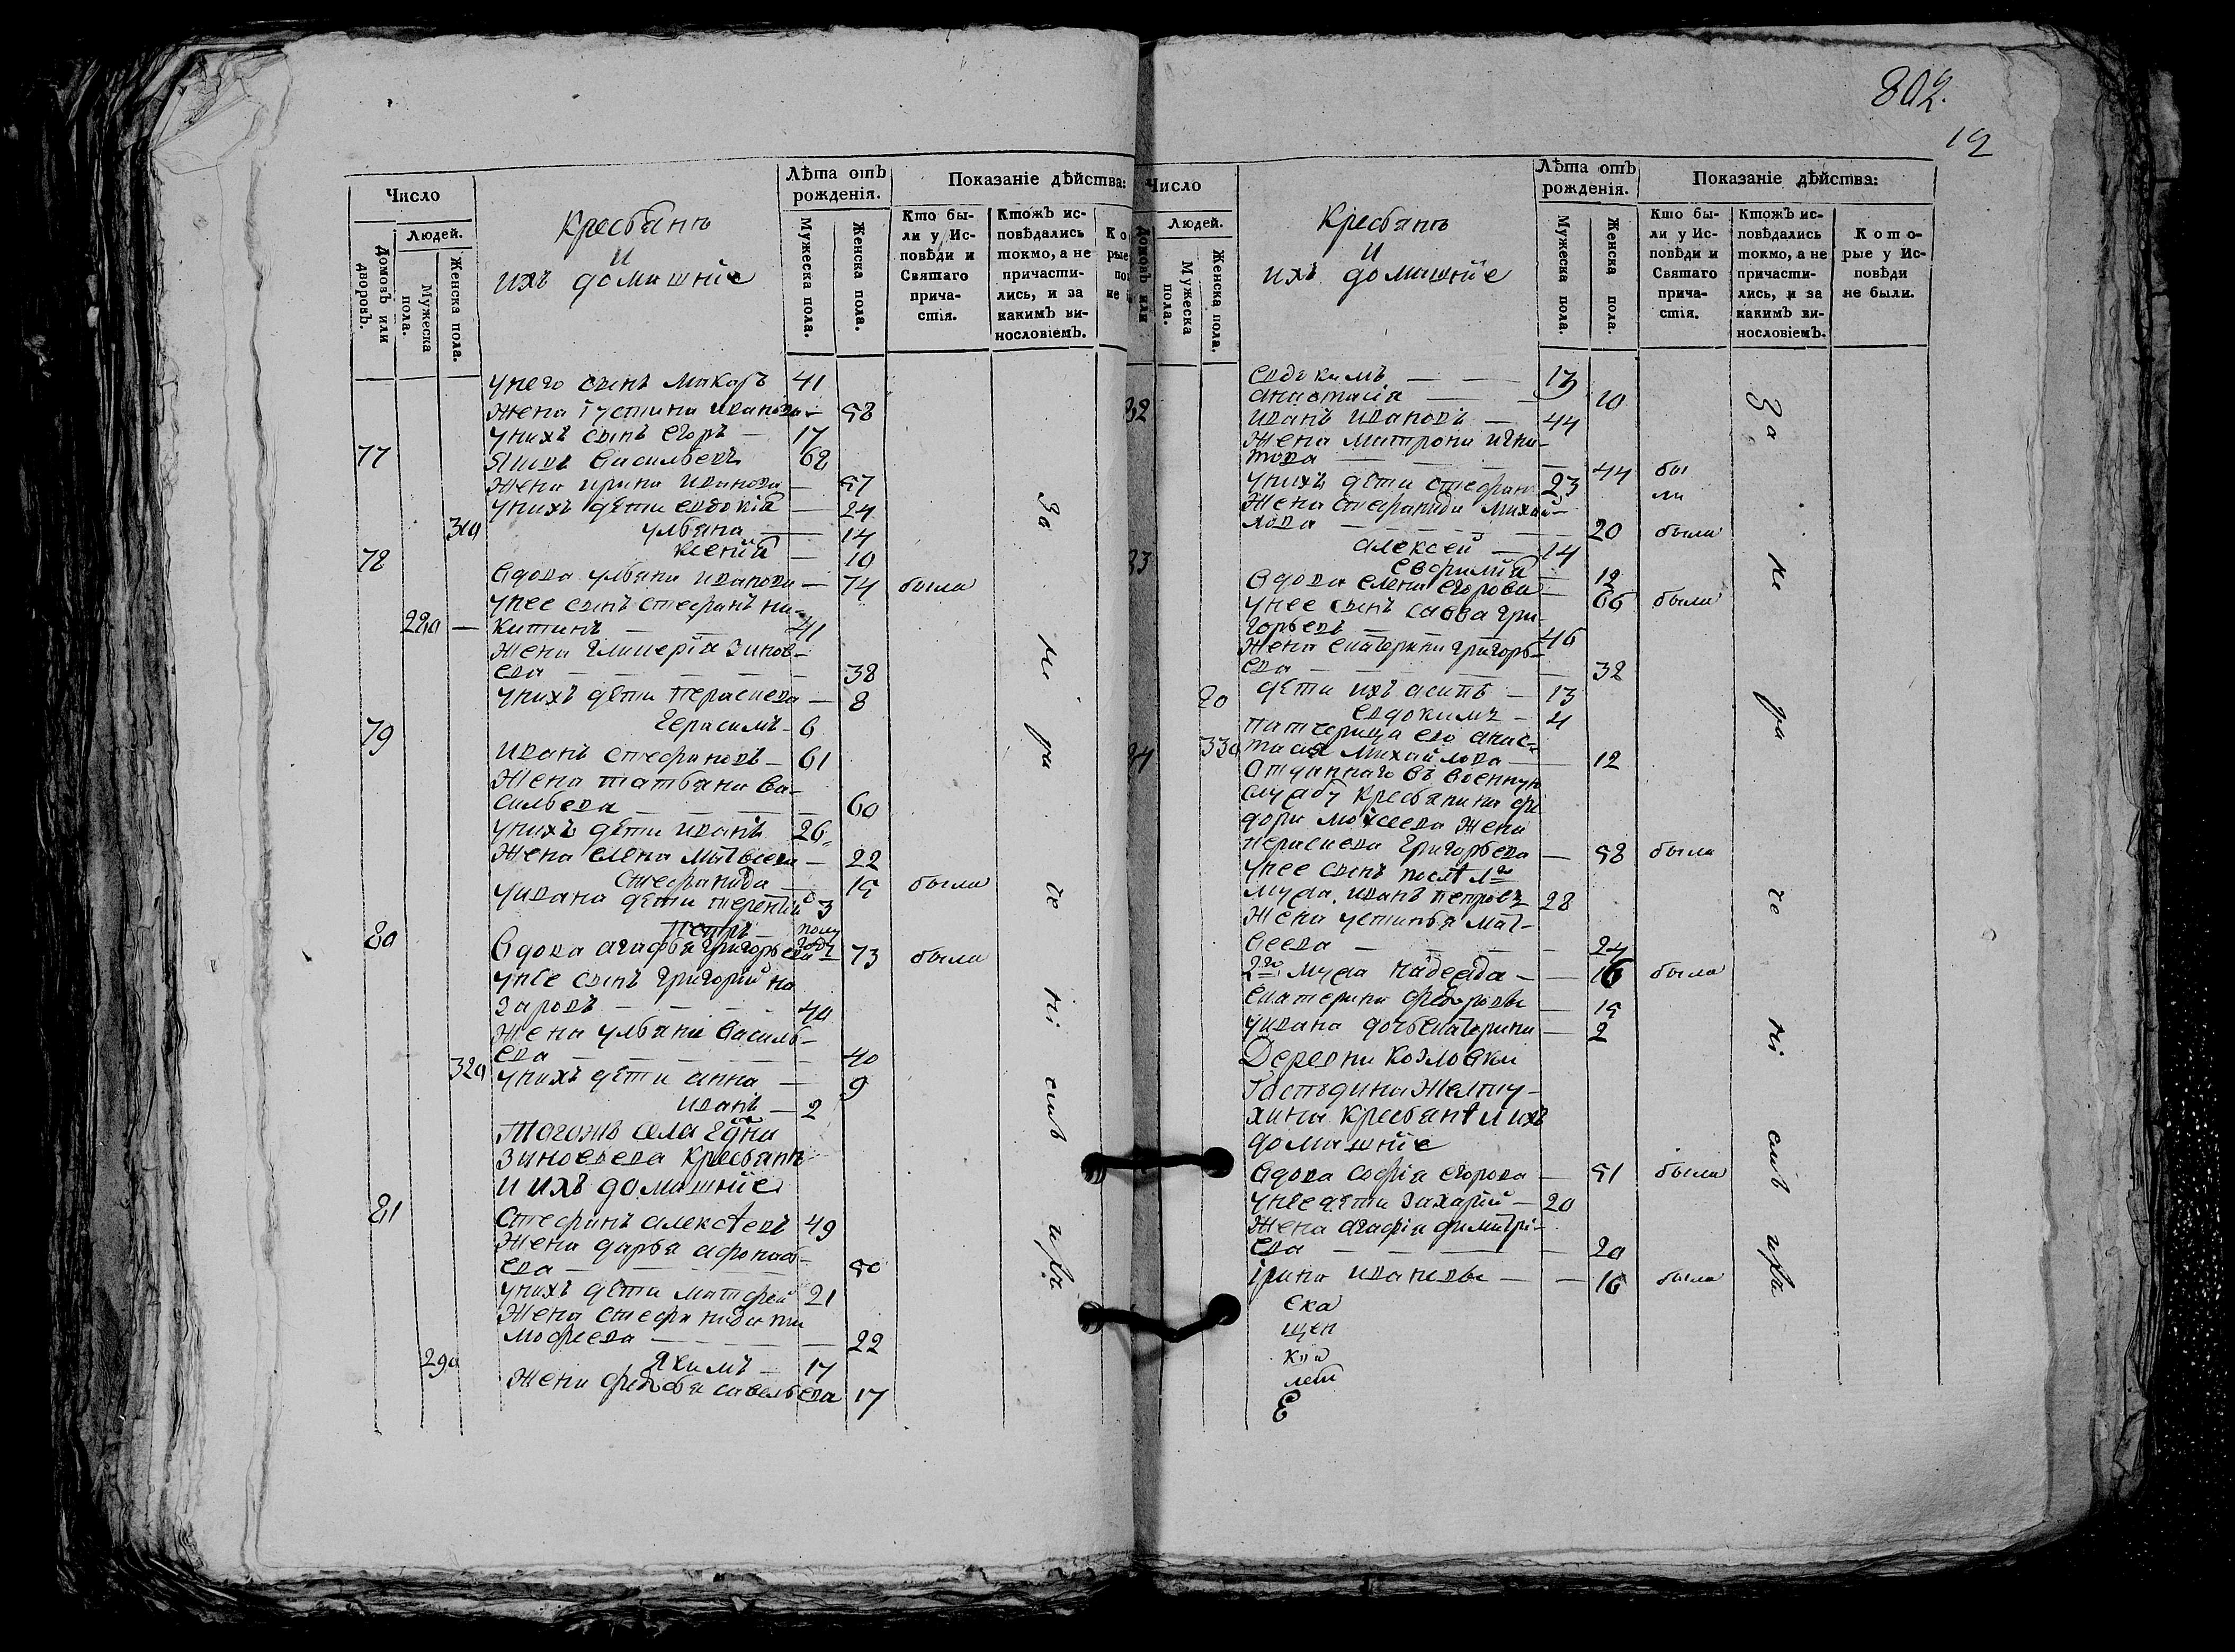 802.
12
Число
Людей.
Домовъ или дворовъ.
Мужеска пола.
Женска пола.
Крестьянъ
и
ихъ домашніе
Лѣта отъ рожденія.
Мужеска пола.
Женска пола.
Показаніе дѣйства:
Кто бы-
ли у Ис-
повѣди и
Святаго
прича-
стія.
Ктожъ ис-
повѣдались
токмо, а не
причасти-
лись, и за
какимъ ви-
нословіемъ.
у него сынъ Макаръ 41
жена Іустина Иванова — 58
у нихъ сынъ Егоръ — 17
77 Васильевъ 62
жена Ирина Иванова — 57
у нихъ дѣти Евдокіа — 24
310 Ульяна — 14
Ксенія — 10
78 Вдова Ульяна Иванова — 74 была
у нее сынъ Стефанъ Ни-
220 — китинъ — 41
жена Гликеріа Зинов-
ева — 38
у нихъ дѣти Параскева — 8
Герасимъ — 6
79 Иванъ Стефановъ — 61
жена Татьяна Ва-
сильева — 60
у нихъ дѣти Иванъ 26
жена Елена Матвеева — 22
Стефанида — 15 была
у Ивана дѣти Терентій 3
Петръ — полу году
80 Вдова Агафья Григорьева 73 была
у нее сынъ Григорій На
заровъ — 40
жена Ульяна Василь-
ева — 40
320 у нихъ дѣти Анна — 9
Иванъ — 2
Тогожъ села Гдна
Зиновьева крестьянъ
и ихъ домашніе
81 Стефанъ Алексѣевъ 49
жена Дарья Афонась-
ева — 50
у нихъ дѣти Матфей 21
жена Стефанида Ти
мофеева — 22
290 Якимъ — 17
жена Федосья Савельева 17
За не ра че ні емъ
Число
Людей.
Домовъ или
Мужеска пола.
Женска пола.
Крестьянъ
и
ихъ домашніе
Лѣта отъ рожденія.
Мужеска пола.
Женска пола.
Показаніе дѣйства:
Кто бы-
ли у Ис-
повѣди и
Святаго
прича-
стія.
Ктожъ ис-
повѣдались
токмо, а не
причасти-
лись, и за
какимъ ви-
нословіемъ.
Кото-
рые у Ис-
повѣди
не были.
Евдокимъ — 13
Анастасіа — 10
82 Иванъ Ивановъ — 44
жена Матрона Ники-
това — 44 бы
у нихъ дѣти Стефанъ 23 ли
жена Стефанида Михай-
лова — 20 была
Алексей — 14
Евфиміа — 12
83 Вдова Елена Егорова — 65 была
у нее сынъ Савва Гри-
горьевъ — 46
жена Екатерина Григорь-
ева — 32
20 дѣти ихъ — 13
Евдокимъ — 4
падчерица его Анас-
330 тасіа Михайлова — 12
84 Отданнаго въ военную
службу крестьянина Фе
дора Моисеева жена
Параскева Григорьева — 58 была
у нее сынъ
мужа Иванъ Петровъ 28
жена Устинья Мат-
веева — 24
2го мужа Надежда — 16 была
Екатерина Федоровы — 15
у Ивана дочь Екатерина — 2
Деревни Козловки
Господина Желту-
хина крестьянѣ и ихъ
домашніе
Вдова Софіа Егорова — 51 была
у нее дѣти Захарій — 20
жена Агафіа Димитрі-
ева — 20
Ірина Ивановы — 16 была
За не ра че ні емъ